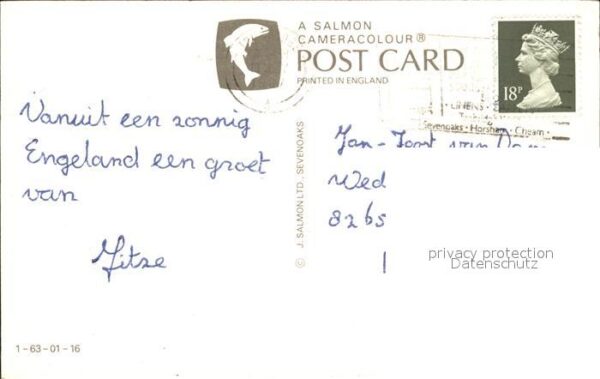 A SALMON
CAMERACOLOUR®
POST CARD
PRINTED IN ENGLAND
18P
LINENS
Sevenoaks · Horsham · Cheam
Vanuit een zonnig
Engeland een groet
van
Jitse
© J. SALMON LTD., SEVENOAKS
Jan-Joost van
Wed
8265
privacy protection
Datenschutz
1-63-01-16